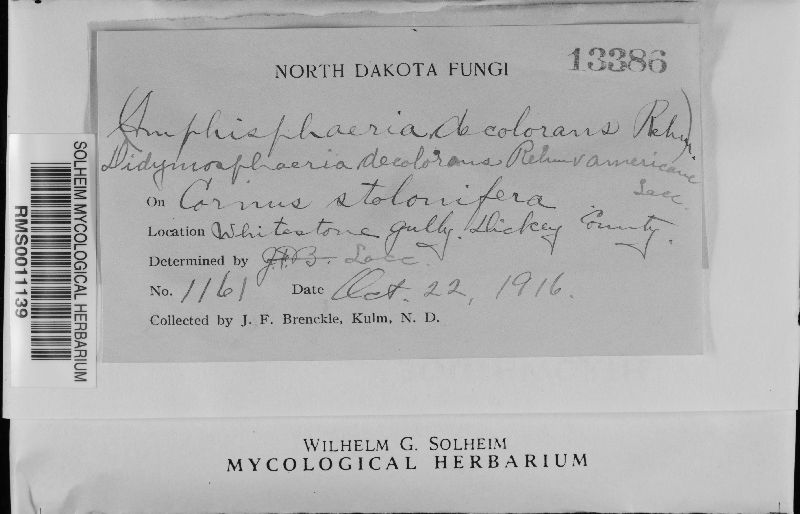 NORTH DAKOTA FUNGI 13386
(Amphisphaeria decolorans Rehm)
Didymosphaeria decolorans Rehm v americana
Sacc.
On Cornus stolonifera
Location Whitestone gully. Dickey County.
Determined by J.F.B. Sacc.
No. 1161 Date Oct. 22, 1916.
Collected by J. F. Brenckle, Kulm, N. D.
SOLHEIM MYCOLOGICAL HERBARIUM
RMS0011139
WILHELM G. SOLHEIM
MYCOLOGICAL HERBARIUM